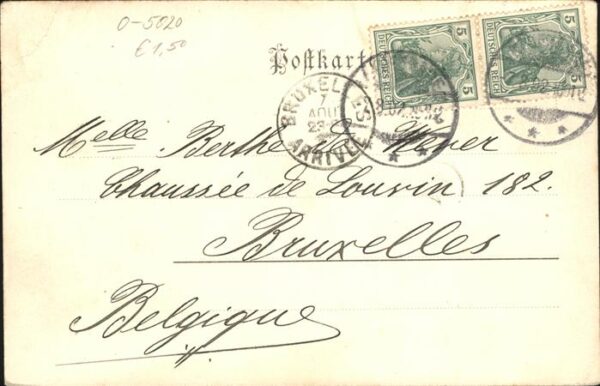 0-5020
€1,50
Postkarte
5 5
DEUTSCHES REICH DEUTSCHES REICH
BRUXELLES
7
AOUT
23
ARRIVEE
Melle Berthe De Wever
Chaussée de Louvin 182.
Bruxelles
Belgique